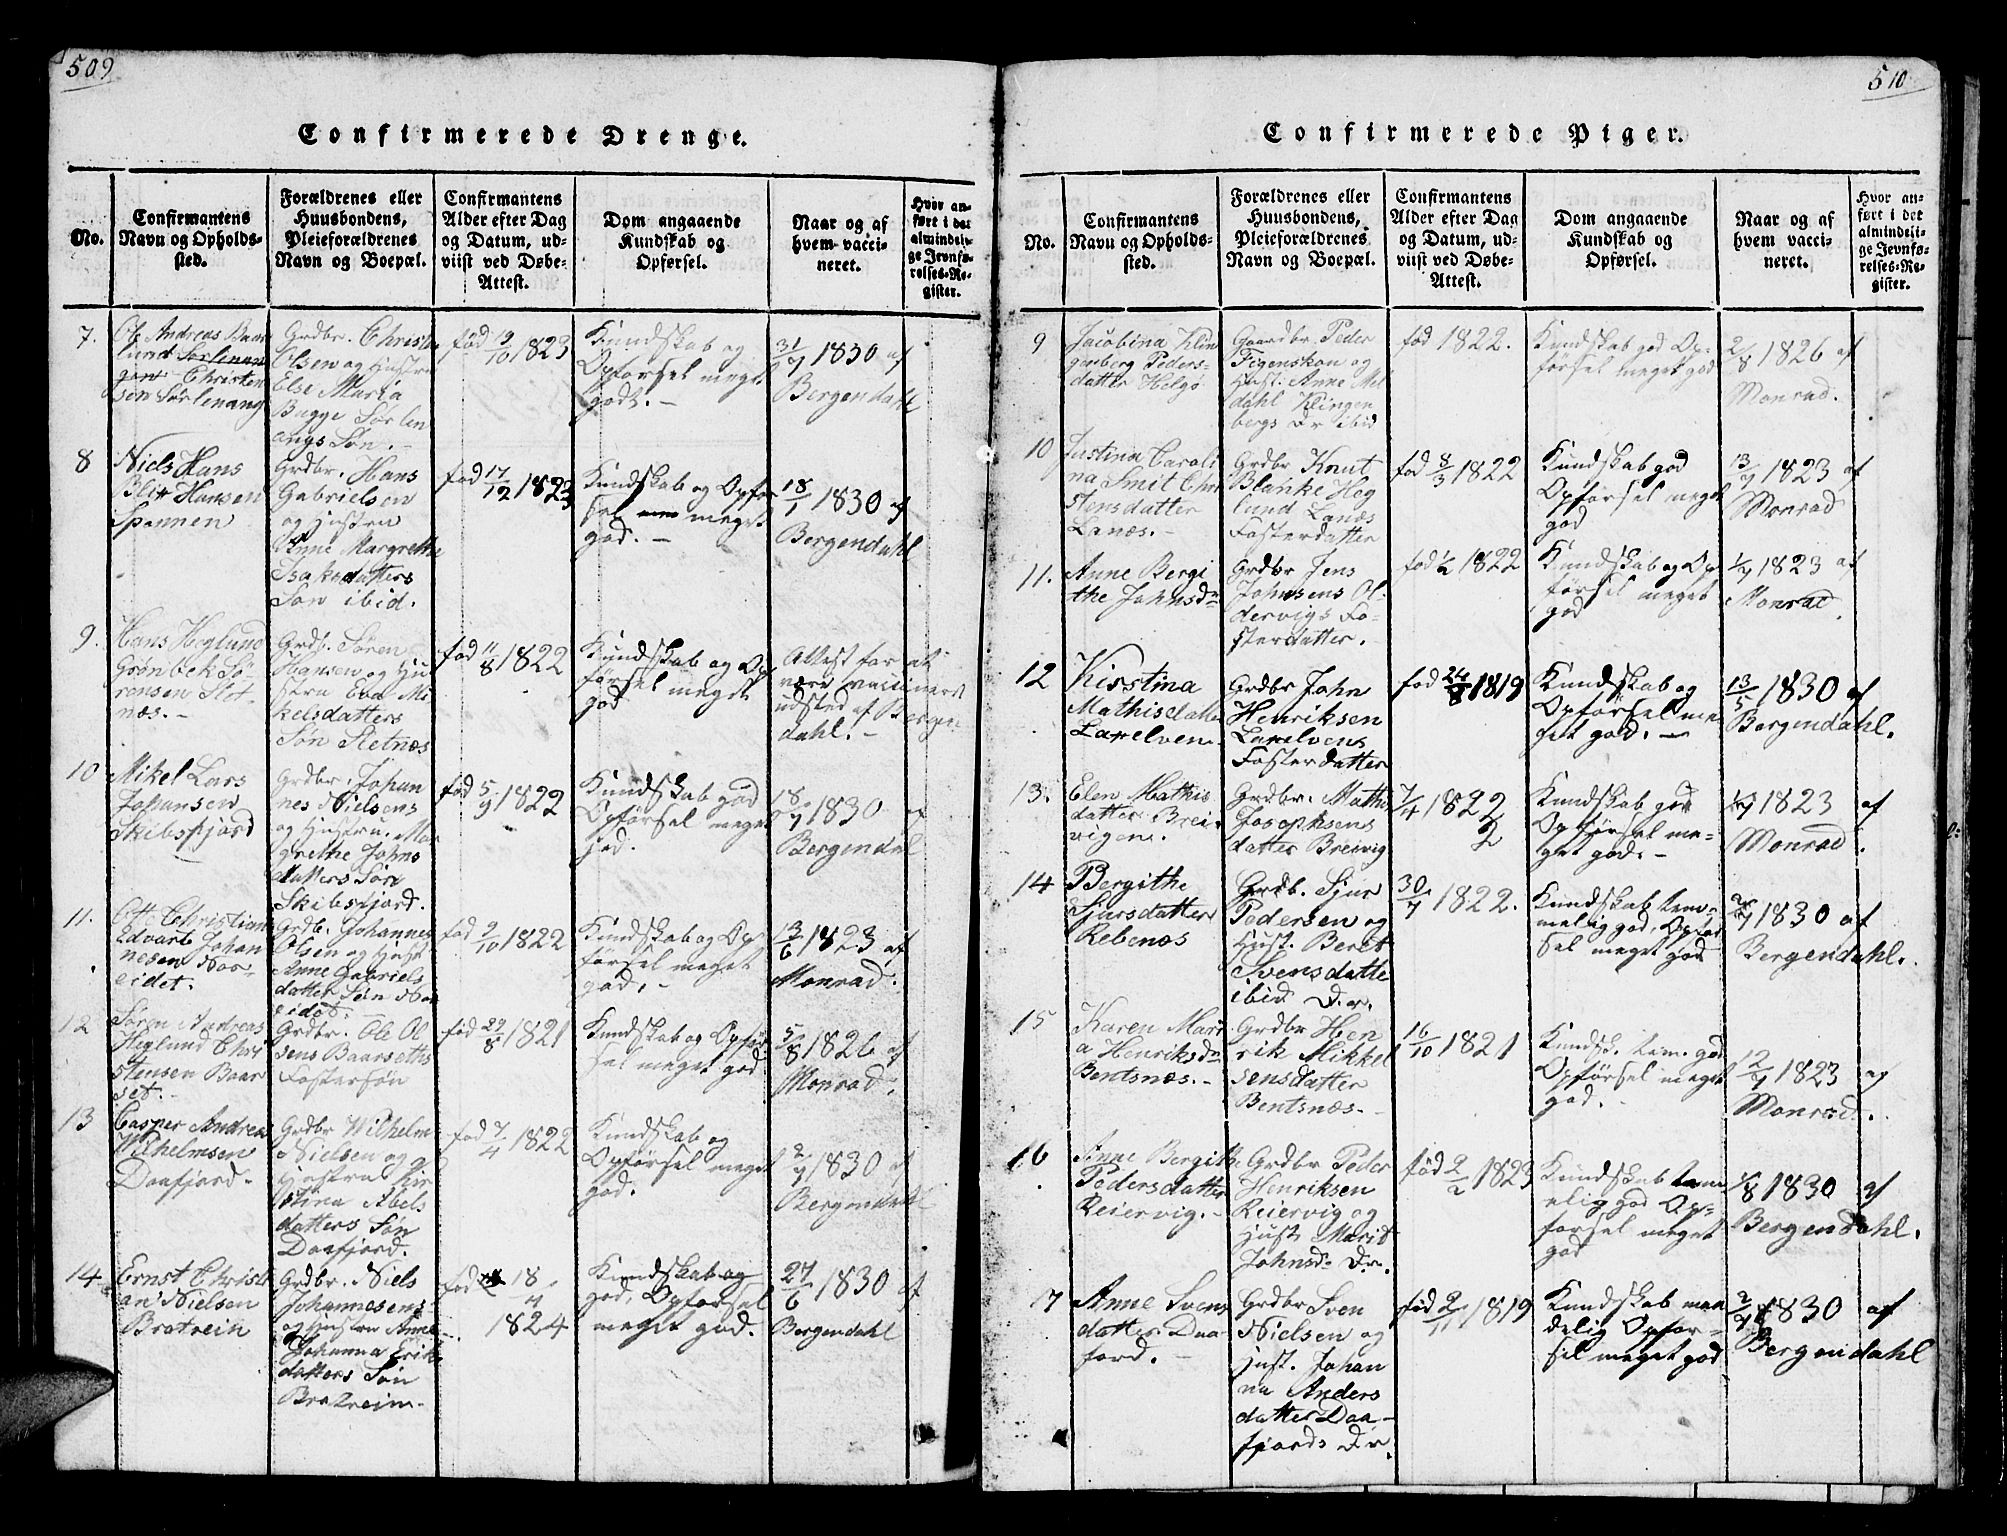 509
Confirmerede Drenge.
No.
Confirmantens
Navn og Opholds-
sted.
Forældrenes eller
Huusbondens,
Pleieforældrenes
Navn og Boepæl.
Confirmantens
Alder efter Dag
og Datum, ud-
viist ved Døbe-
Attest.
Dom angaaende
Kundskab og
Opførsel.
Naar og af
hvem vacci-
neret.
Hvor an-
ført i det
almindeli-
ge Jevnfø-
relses-Re-
gister.
7.
Ole Andreas
lund Sørlenan
gen Christen
sen Sørlenang
Grdbr. Christen
Olsen og Hustru
Else Maria
Bugge Sørlen
angs Søn.
fød 19/10 1823
Kundskab og
Opførsel meget
godt. -
31/7 1830 af
Bergendahl
8
Niels Hans
Blix Hansen
Spannen
Grdbr. Hans
Gabrielsen
og Hustru
Anne Margrethe
Isaksdatters
Søn ibid.
fød 17/12 1823
Kundskab og Opfør
sel meget
god. -
18/1 1830 af
Bergendahl
9.
Hans Heglund
Grønbek Sø-
rensen Slet-
næs. -
Grdb. Søren
Hansen og Hu
stru Eva Mi
kelsdatters
Søn Sletnæs
fød 11/8 1822
Kundskab og Op
førsel meget
god
Attest for at
være vaccineret
udsted af Bergen
dahl. -
10
Mikel Lars
Johansen
Skibsfjord
Grdbr. Johan
nes Nielsens
og Hustru Mar
grethe Johns
datters Søn
Skibsfjord.
fød 5/9 1822
Kundskab god
Opførsel meget
god.
18/7 1830 af
Bergendal
11.
Ott Christian
Edvart Johan
nesen Nor-
eidet.
Grdb. Johannes
Olsen og Hust
Anne Gabriels
datter Søn Nor
eidet.
fød 9/10 1822
Kundskab og Op
førsel meget
god. -
13/6 1823 af
Monrad.
12
Søren Andreas
Heglund Chri
stensen Baar
set. -
Grdbr. Ole Ol
sens Baarseths
Fostersøn
fød 29/8 1821
Kundskab og Opfør
sel meget god
5/8 1826 af
Monrad.
13
Casper Andreas
Wilhelmsen
Daafjord.
Grdbr Wilhelm
Nielsen og
Hustru Kir
stina Abels
datters Søn
Daafjord.
fød 7/4 1822
Kundskab og
Opførsel meget
god.
2/7 1830 af
Bergendahl
14
Ernst Christi
an Nielsen
Bratrein
Grdbr. Niels
Johannesens
og Hustru Anne
Johanna Erik
datters Søn
Bratreim.
fød 18/4
1824
Kundskab og
god, Opførsel
meget god.
27/6 1830 af
Bergendahl
510
Confirmerede Piger.
No.
Confirmantens
Navn og Opholds-
sted.
Forældrenes eller
Huusbondens,
Pleieforældrenes
Navn og Boepæl.
Confirmantens
Alder efter Dag
og Datum, ud-
viist ved Døbe-
Attest.
Dom angaaende
Kundskab og
Opførsel.
Naar og af
hvem vacci-
neret.
Hvor an-
ført i det
almindeli-
ge Jevnfø-
relses-Re-
gister.
9
Jacobina Klin
genberg Peders-
datter Helgø
Gaardbr Peder
Figenskou og
Hust. Anne Mel
dahl Klingen
bergs Dr ibid
fød 1822.
Kundskab god Op-
førsel meget god
2/8 1826 af
Monrad.
10
Justina Caroli
na Smit Chri
stensdatter
Lanæs. -
Grdbr Knut
Blanke Heg
lund Lanæs
Fosterdatter
fød 8/3 1822
Kundskab god
Opførsel meget
god
13/7 1823 af
Monrad
11.
Anne Bergi
the Johnsdr
Grdbr Jens
Johnsens Ol-
dervigs Fo-
sterdatter.
fød 1/2 1822
Kundskab og Op
førsel meget
god
1/7 1823 af
Monrad.
12
Kisstina
Mathisdatter
Laxelven.
Grdbr John
Henriksen
Laxelvens
Fosterdatter
fød 24/8 1819
Kundskab og
Opførsel me
get god. -
13/5 1830 af
Bergendahl.
13.
Elen Mathis
datter Brei-
vigen.
Grdbr. Mathis
Josephsens
datter Breivig
7/4 1822
2
Kundskab god
Opførsel me-
get god. -
1823 af
Monrad.
14
Bergithe
Sjursdatter
Rebenæs
Grdb. Sjur
Pedersen og
Hust. Beret
Svensdatte
ibid Dr.
30/7 1822.
Kundskab tem-
melig god, Opfør
sel meget god
2/7 1830 af
Bergendahl.
15
Karen Mari
a Henriksdr
Bentsnæs. -
Grdbr Hen
rik Mikkel
sensdatter
Bentsnæs. -
16/10 1821
Kundsk. tem. god
Opførsel meget
god. -
12/7 1823 af
Monrad.
16
Anne Bergithe
Pedersdatter
Reiervig. -
Grdbr Peder
Henriksen
Reiervig og
Hust Marit
Johnsdr Dr.
fød 2/2 1823
Kundskab tem
elig god Op-
førsel meget
god
1/8 1830 af
Bergendahl.
17
Anne Svens
datter Daa-
fjord. -
Grdbr Sven
Nielsen og
Hust. Johan
na Anders
datter Daa-
fjords Dr.
fød 2/11 1819
Kundskab maa
delig Opfør-
sel meget god
2/7 1830 af
Bergendahl